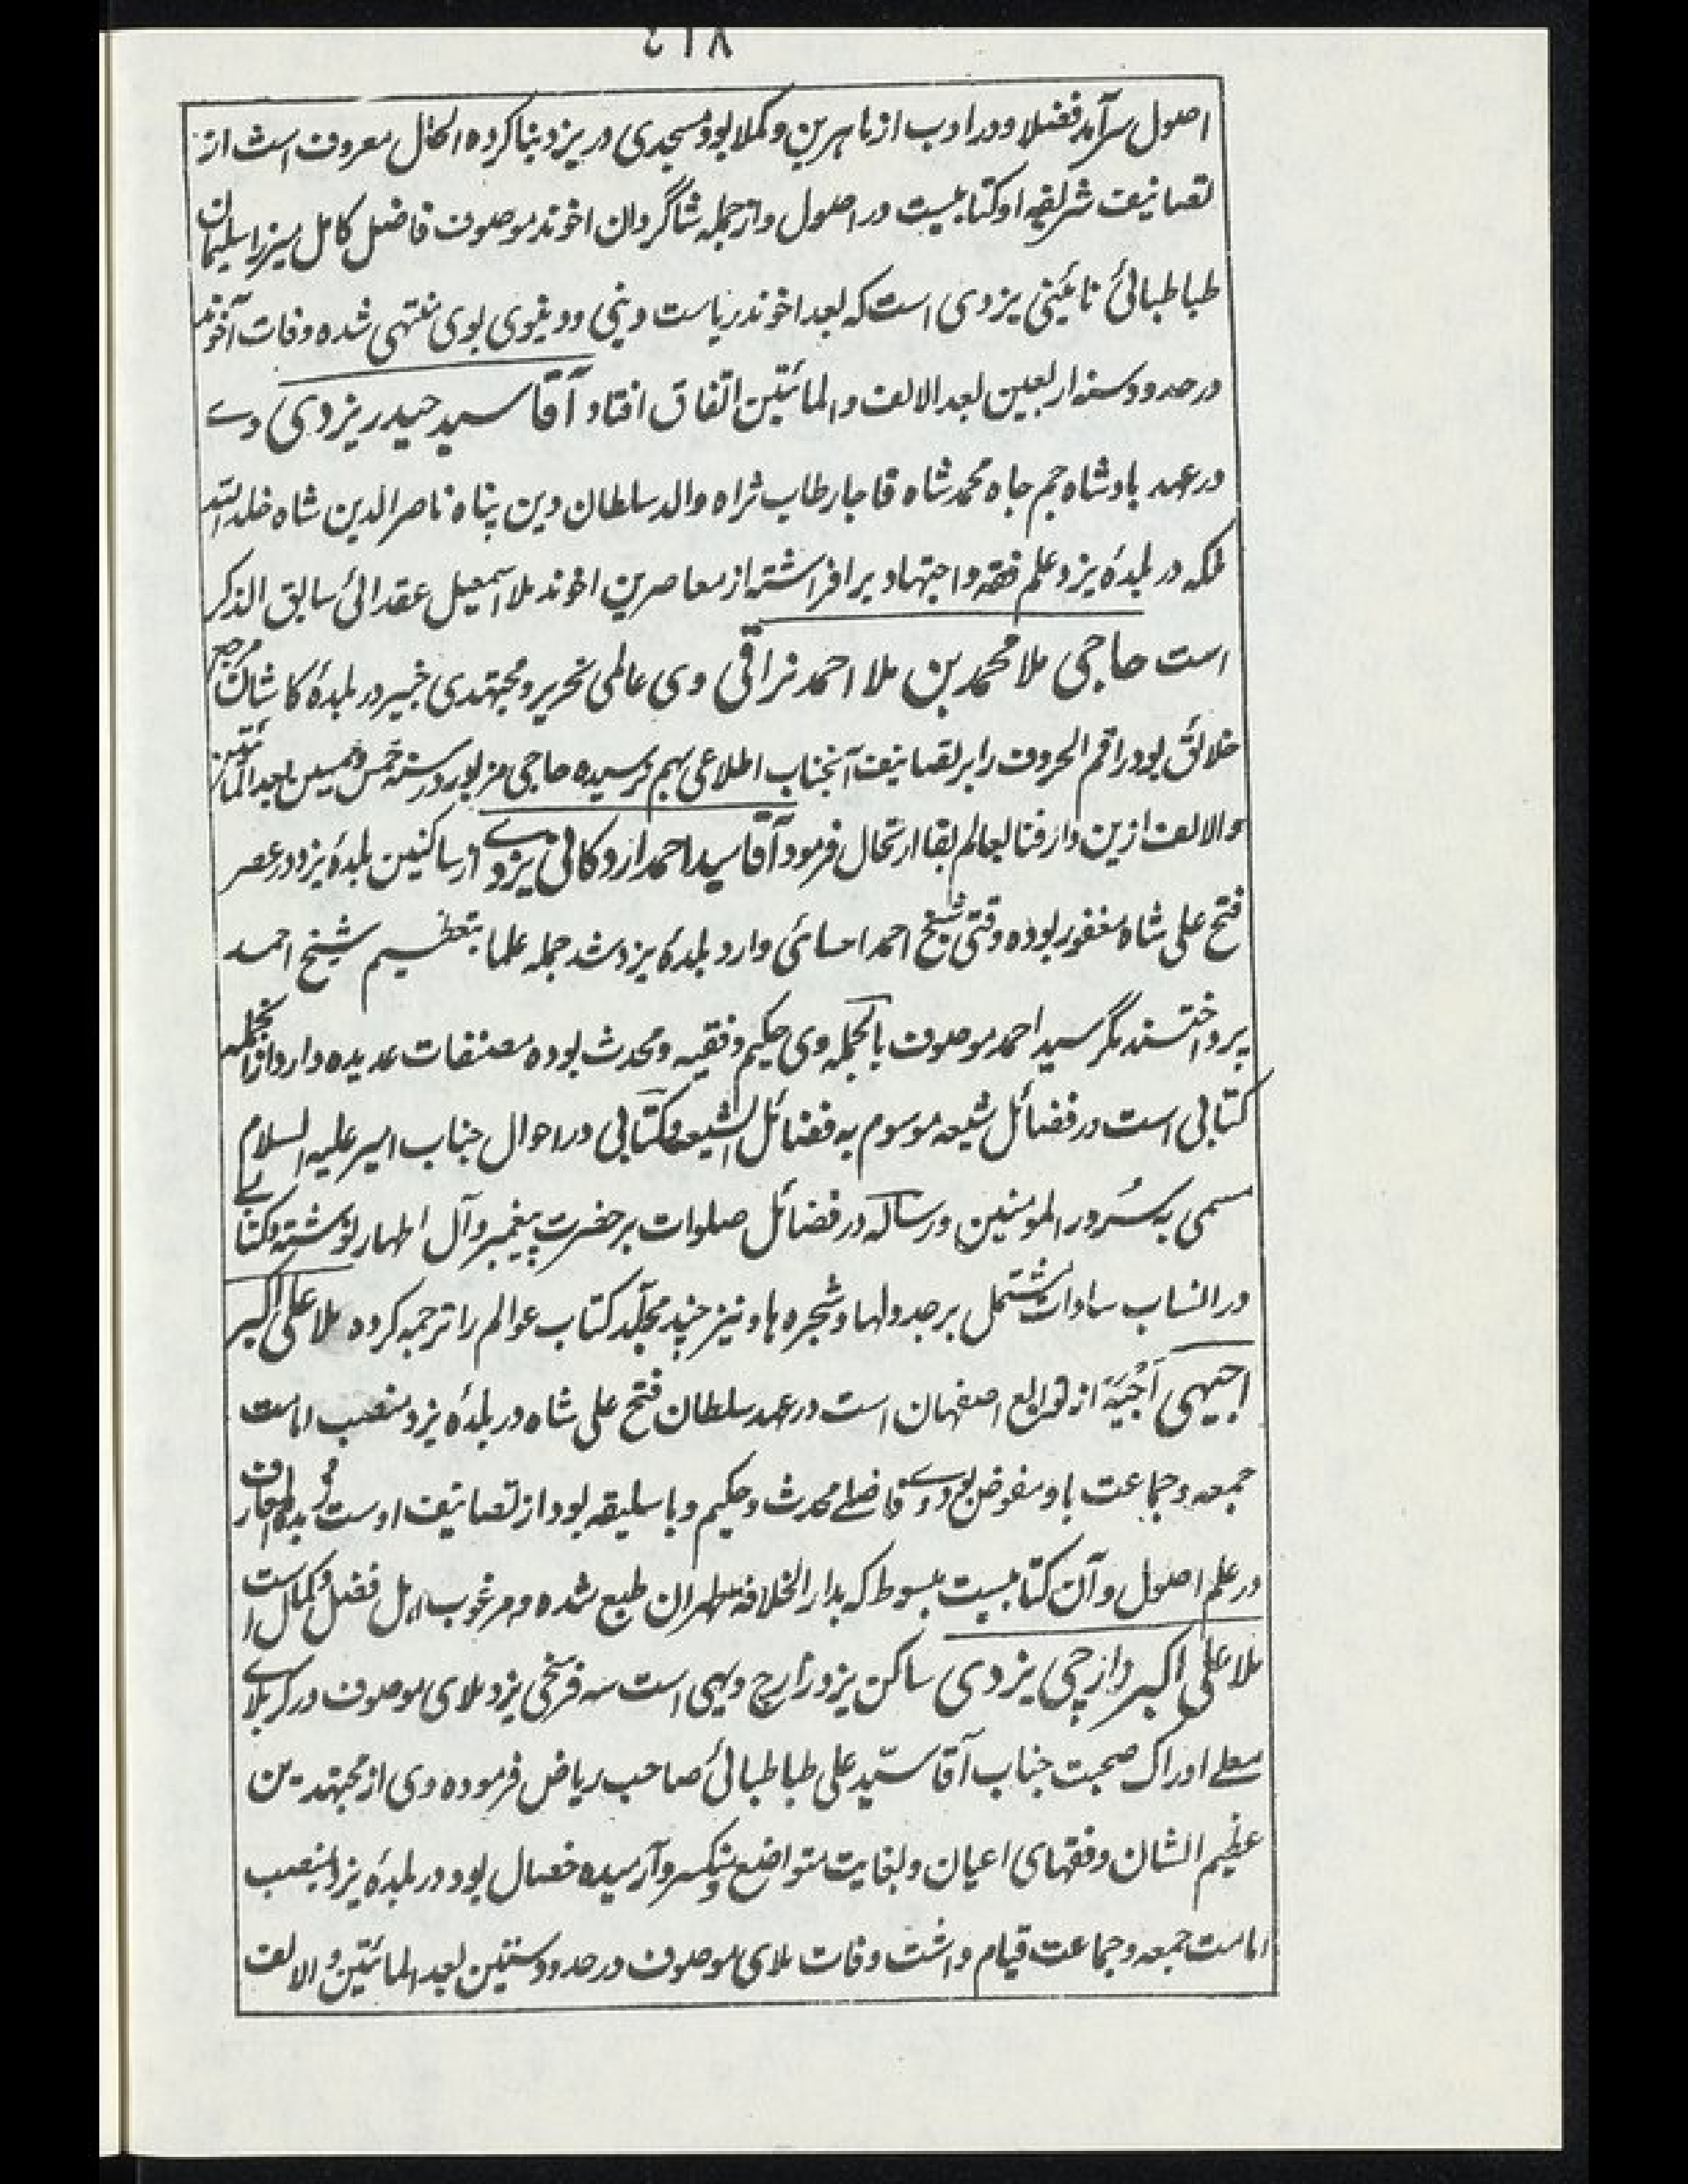 ٤١٨
اصول سرآمد فضلا و در ادب از ماهرین و کملا بود مسجدی در یزد بنا کرده الحال معروف است از
تصانیف شریفه او کتابیست در اصول و از جمله شاگردان اخوند موصوف فاضل کامل میرزا سلیمان
طباطبائی نائینی یزدی است که بعد اخوند ریاست دینی و دنیوی بوی منتهی شده وفات آخوند
در حدود سنه اربعین بعد الالف والمائتین اتفاق افتاد آقا سید حیدر یزدی وے
در عهد بادشاه جم جاه محمد شاه قاجار طاب ثراه والد سلطان دین پناه ناصر الدین شاه خلد الله
ملکه در بلدۀ یزد علم فقه و اجتهاد بر افراشته از معاصرین اخوند ملا اسمعیل عقدائی سابق الذکر
است حاجی ملا محمد بن ملا احمد نراقی وی عالمی نحریر و مجتهدی خبیر در بلدۀ کاشان مرجع
خلائق بود راقم الحروف را بر تصانیف آنجناب اطلاعی بهم نرسیده حاجی مزبور در سنه خمس و خمسین بعد المائتین
والالف ازین دار فنا بعالم بقا ارتحال فرمود آقا سید احمد اردکانی یزدے از ساکنین بلدۀ یزد در عصر
فتح علی شاه مغفور بوده وقتی شیخ احمد احسائی وارد بلدۀ یزد شد جمله علما بتعظیم شیخ احمد
پرداختند مگر سید احمد موصوف بالجمله وی حکیم و فقیه و محدث بوده مصنفات عدیده دارد از آنجمله
کتابی است در فضائل شیعه موسوم به فضائل الشیعه و کتابی در احوال جناب امیر علیه السلام
مسمی به سُرور المومنین و رساله در فضائل صلوات بر حضرت پیغمبر و آل اطهار نوشته و کتابے
در انساب سادات مشتمل بر جدولها و شجره ها و نیز چند مجلّد کتاب عوالم را ترجمه کرده ملا علی اکبر
اجیهی اَجْیَه از توابع اصفهان است در عهد سلطان فتح علی شاه در بلدۀ یزد منصب امامت
جمعه و جماعت باو مفوض بود وے فاضلے محدث و حکیم و با سلیقه بود از تصانیف اوست زبدة المعارف
در علم اصول و آن کتابیست مبسوط که بدار الخلافه طهران طبع شده و مرغوب اهل فضل و کمال است
ملا علی اکبر زارچی یزدی ساکن یزد زارچ دیهی است سه فرسخی یزد ملای موصوف در کربلاے
معلے ادراک صحبت جناب آقا سیّد علی طباطبائی صاحب ریاض فرموده وی از مجتهدین
عظیم الشان و فقهای اعیان و بغایت متواضع و منکسر و آرمیده خصال بود در بلدۀ یزد بمنصب
امامت جمعه و جماعت قیام داشت وفات ملای موصوف در حدود ستین بعد المائتین والالف